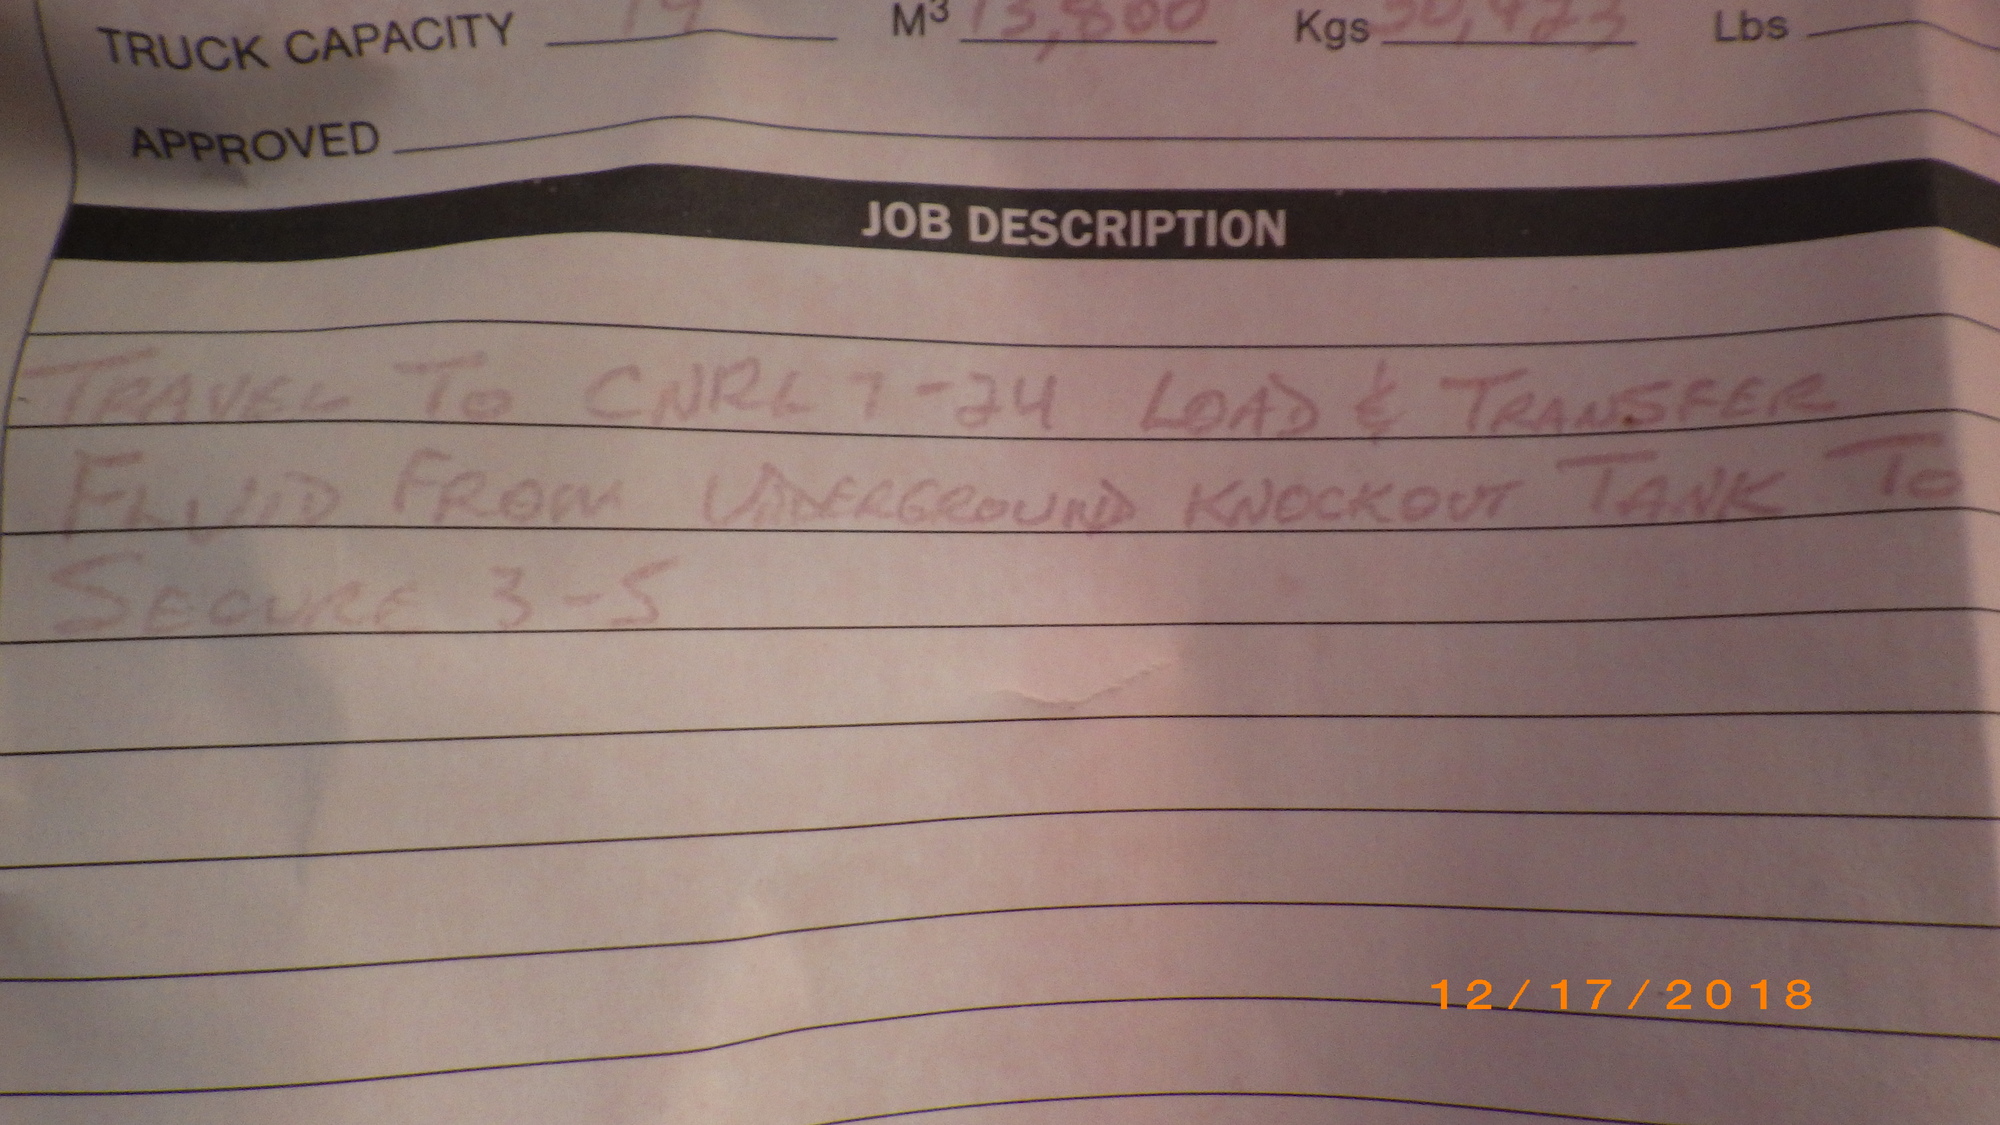 TRUCK CAPACITY 14 M³ 13,800 Kgs 30,423 Lbs
APPROVED
JOB DESCRIPTION
TRAVEL TO CNRL 7-24 LOAD & TRANSFER
FLUID FROM UNDERGROUND KNOCKOUT TANK TO
SECURE 3-5
12/17/2018